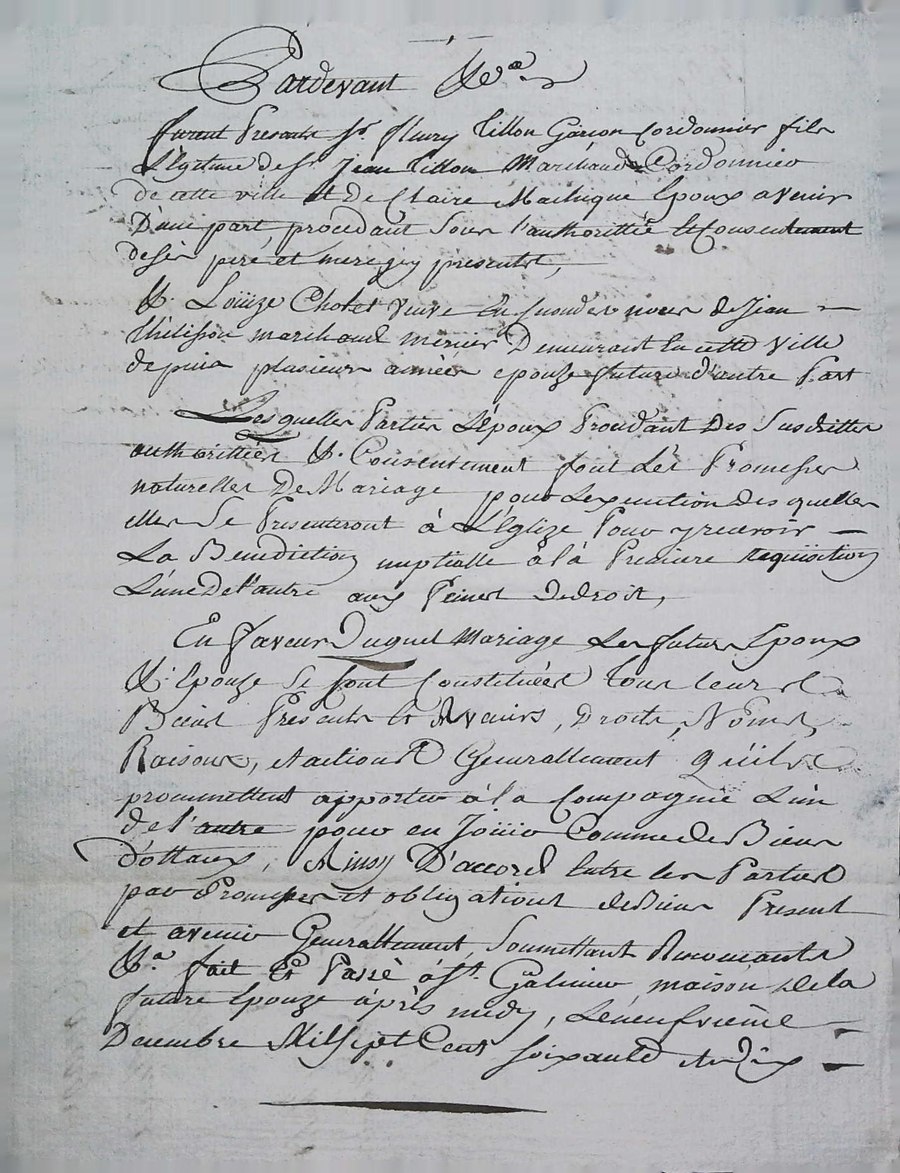 Pardevant &a
furent Presents sr. fleury Tillon Garcon Cordonnier fils
Légitime de sr. Jean Tillon Marchand Cordonnier
de cette ville et De Claire Époux avenir
D'une part, procedant Sous l'authorittée et Consentement
de ses peré et mere icy presents,
&. Loüize Cholet veuve En secondes noces de Jean
Thélisson marchand mercier Demeurant En cette ville
depuis plusieurs années epouze future d'autre Part
Lesquelles Parties L'Époux Procédant Des Susdittes
authorittées &. Consentement font des Promesses
naturelles De Mariage pour L'exécution des quelles
elles Se Presenteront à L'Églize Pour y recevoir
La Benediction nuptialle à là Premiere Requiisition
L'une De l'autre aux Peines de droit,
En faveur Duquel Mariage Les futurs Epoux
&. Epouze Se sont Constituées Tous leurs
Biens Presents et Avenirs, Droits, Noms,
Raisons, et actions Generallement Qu'ils
prommettent apporter à la Compagnie L'un
de l'autre pour en Joüir Comme de Biens
d'ottaux, Ainsy D'accord Entre les Parties
par Promesses et obligations de Biens Present
et avenir Generallement, Soumettant Renonçants
&a. fait Et Passé à St. Galmier maison de la
future Epouze après midy, Le neufvième
Decembre Mil Sept Cent soixante et dix